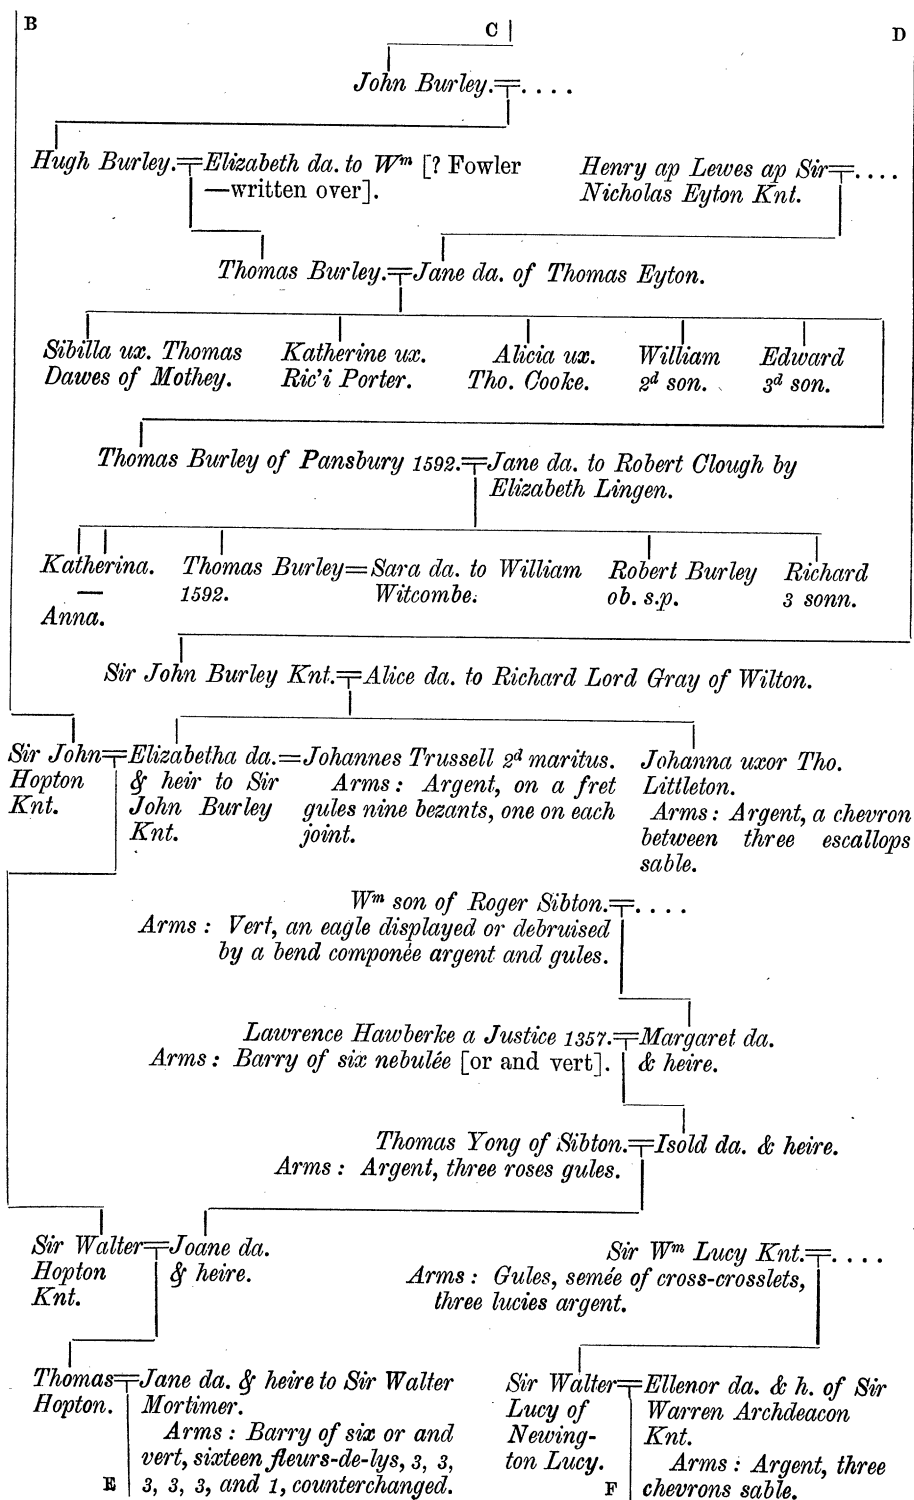 B
C
D
John Burley.=. . . .
Hugh Burley.=Elizabeth da. to Wᵐ [? Fowler
—written over].
Henry ap Lewes ap Sir=. . . .
Nicholas Eyton Knt.
Thomas Burley.=Jane da. of Thomas Eyton.
Sibilla ux. Thomas
Dawes of Mothey.
Katherine ux.
Ric'i Porter.
Alicia ux.
Tho. Cooke.
William
2ᵈ son.
Edward
3ᵈ son.
Thomas Burley of Pansbury 1592.=Jane da. to Robert Clough by
Elizabeth Lingen.
Katherina.
—
Anna.
Thomas Burley=Sara da. to William
1592.
Witcombe.
Robert Burley
ob. s.p.
Richard
3 sonn.
Sir John Burley Knt.=Alice da. to Richard Lord Gray of Wilton.
Sir John=
Hopton
Knt.
Elizabetha da.=
& heir to Sir
John Burley
Knt.
Johannes Trussell 2ᵈ maritus.
Arms: Argent, on a fret
gules nine bezants, one on each
joint.
Johanna uxor Tho.
Littleton.
Arms: Argent, a chevron
between three escallops
sable.
Wᵐ son of Roger Sibton.=. . . .
Arms: Vert, an eagle displayed or debruised
by a bend componée argent and gules.
Lawrence Hawberke a Justice 1357.=Margaret da.
Arms: Barry of six nebulée [or and vert]. & heire.
Thomas Yong of Sibton.=Isold da. & heire.
Arms: Argent, three roses gules.
Sir Walter=Joane da.
Hopton & heire.
Knt.
Sir Wᵐ Lucy Knt.=. . . .
Arms: Gules, semée of cross-crosslets,
three lucies argent.
Thomas=
Hopton.
Jane da. & heire to Sir Walter
Mortimer.
Arms: Barry of six or and
vert, sixteen fleurs-de-lys, 3, 3,
3, 3, 3, and 1, counterchanged.
E
Sir Walter=
Lucy of
Newing-
ton Lucy.
Ellenor da. & h. of Sir
Warren Archdeacon
Knt.
Arms: Argent, three
chevrons sable.
F